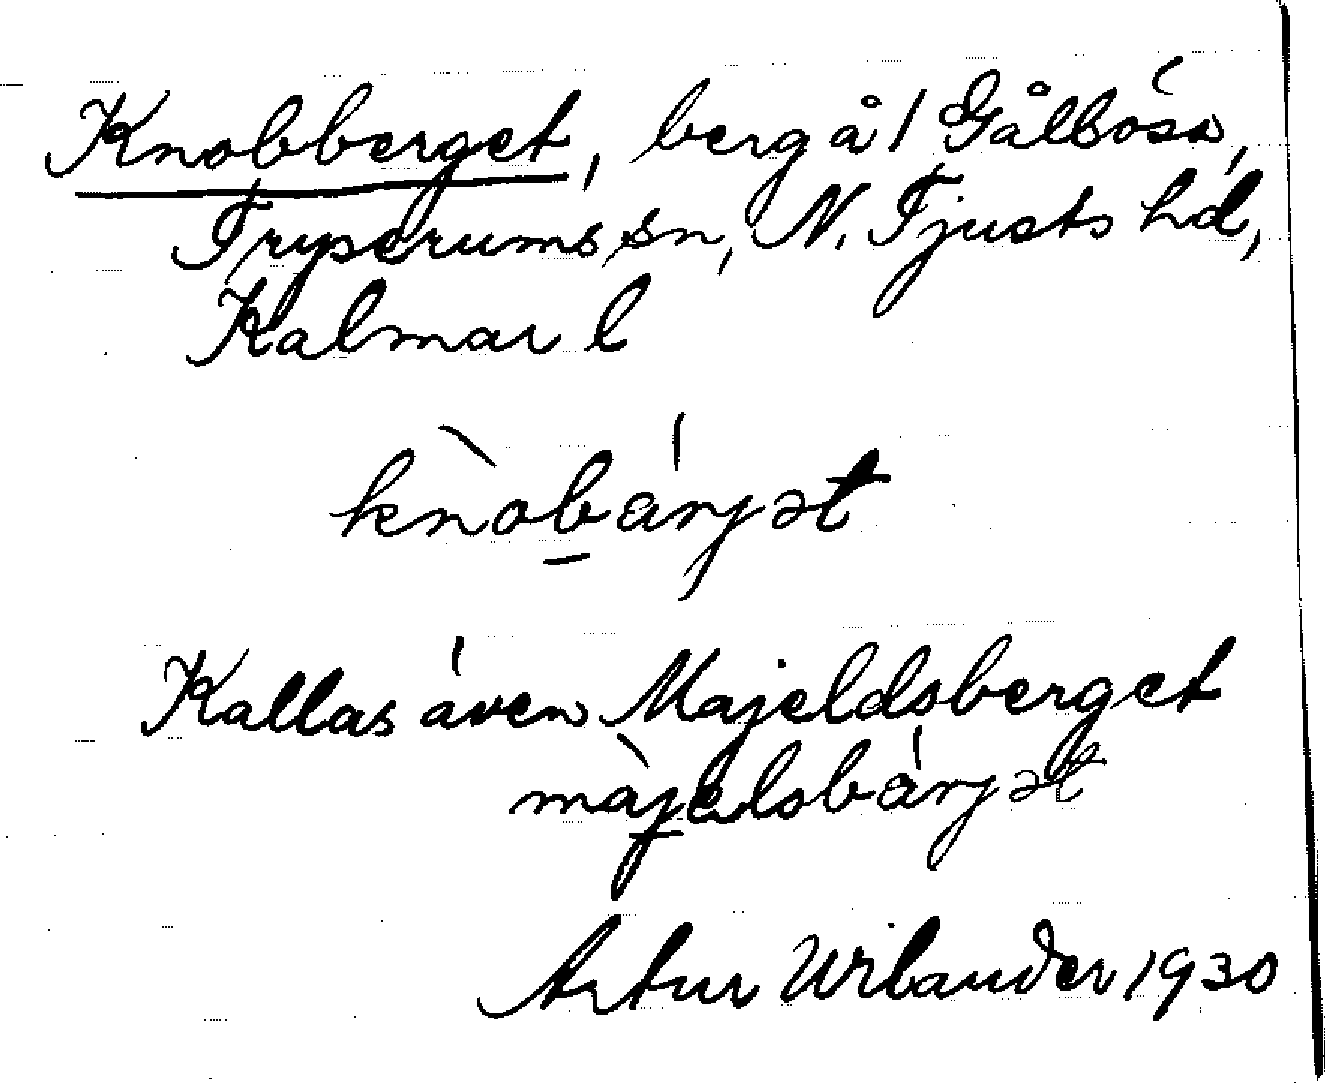 Knobberget, berg å 1 Gålbósa,
Tryserums sn, N. Tjusts hd,
Kalmar l
knòbárjət
Kallas även Majeldsberget
màjelsbárjət
Artur Wilander 1930